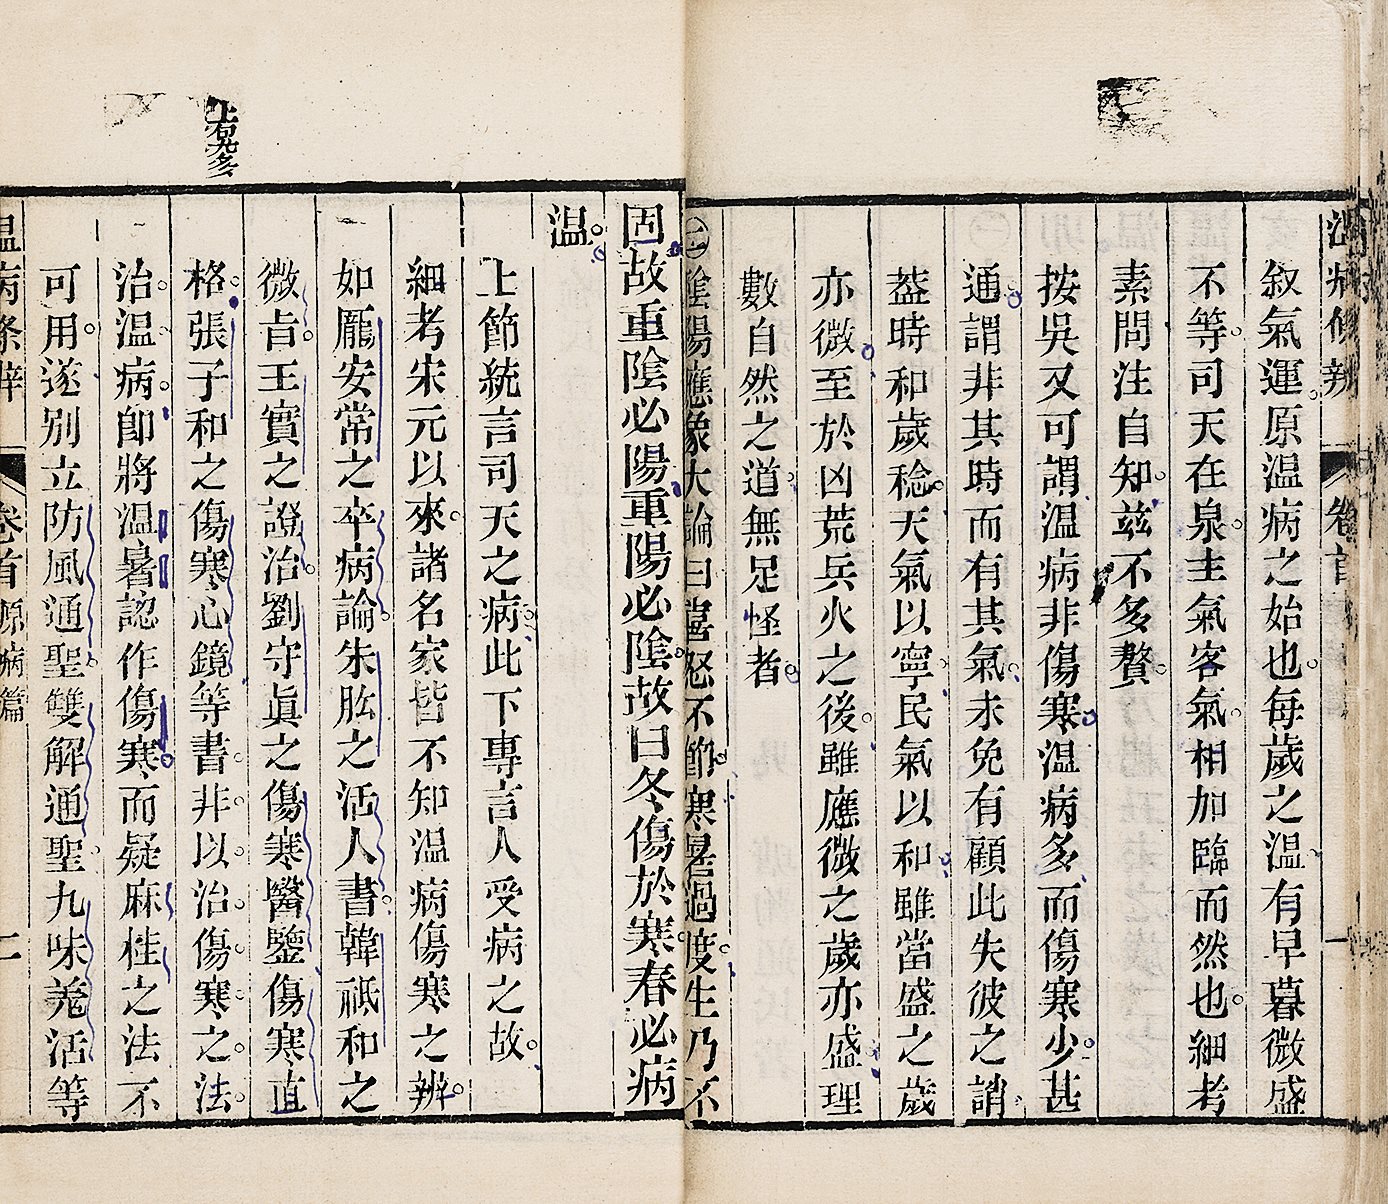 溫病條辨 卷首 一
叙氣運原温病之始也每歲之温有早暮微盛
不等司天在泉主氣客氣相加臨而然也細考
素問注自知茲不多贅
按吳又可謂温病非傷寒温病多而傷寒少甚
通謂非其時而有其氣未免有顧此失彼之誚
葢時和歲稔天氣以寧民氣以和雖當盛之歲
亦微至於凶荒兵火之後雖應微之歲亦盛理
數自然之道無足怪者
㊁陰陽應象大論曰喜怒不節寒暑過度生乃不
固故重陰必陽重陽必陰故曰冬傷於寒春必病
温
上節統言司天之病此下專言人受病之故
細考宋元以來諸名家皆不知温病傷寒之辨
如龐安常之卒病論朱肱之活人書韓祗和之
微旨王實之證治劉守眞之傷寒醫鑒傷寒直
格張子和之傷寒心鏡等書非以治傷寒之法
治温病卽將温暑認作傷寒而疑麻桂之法不
可用遂別立防風通聖雙解通聖九味羗活等
温病條辨 卷首 原病篇 二